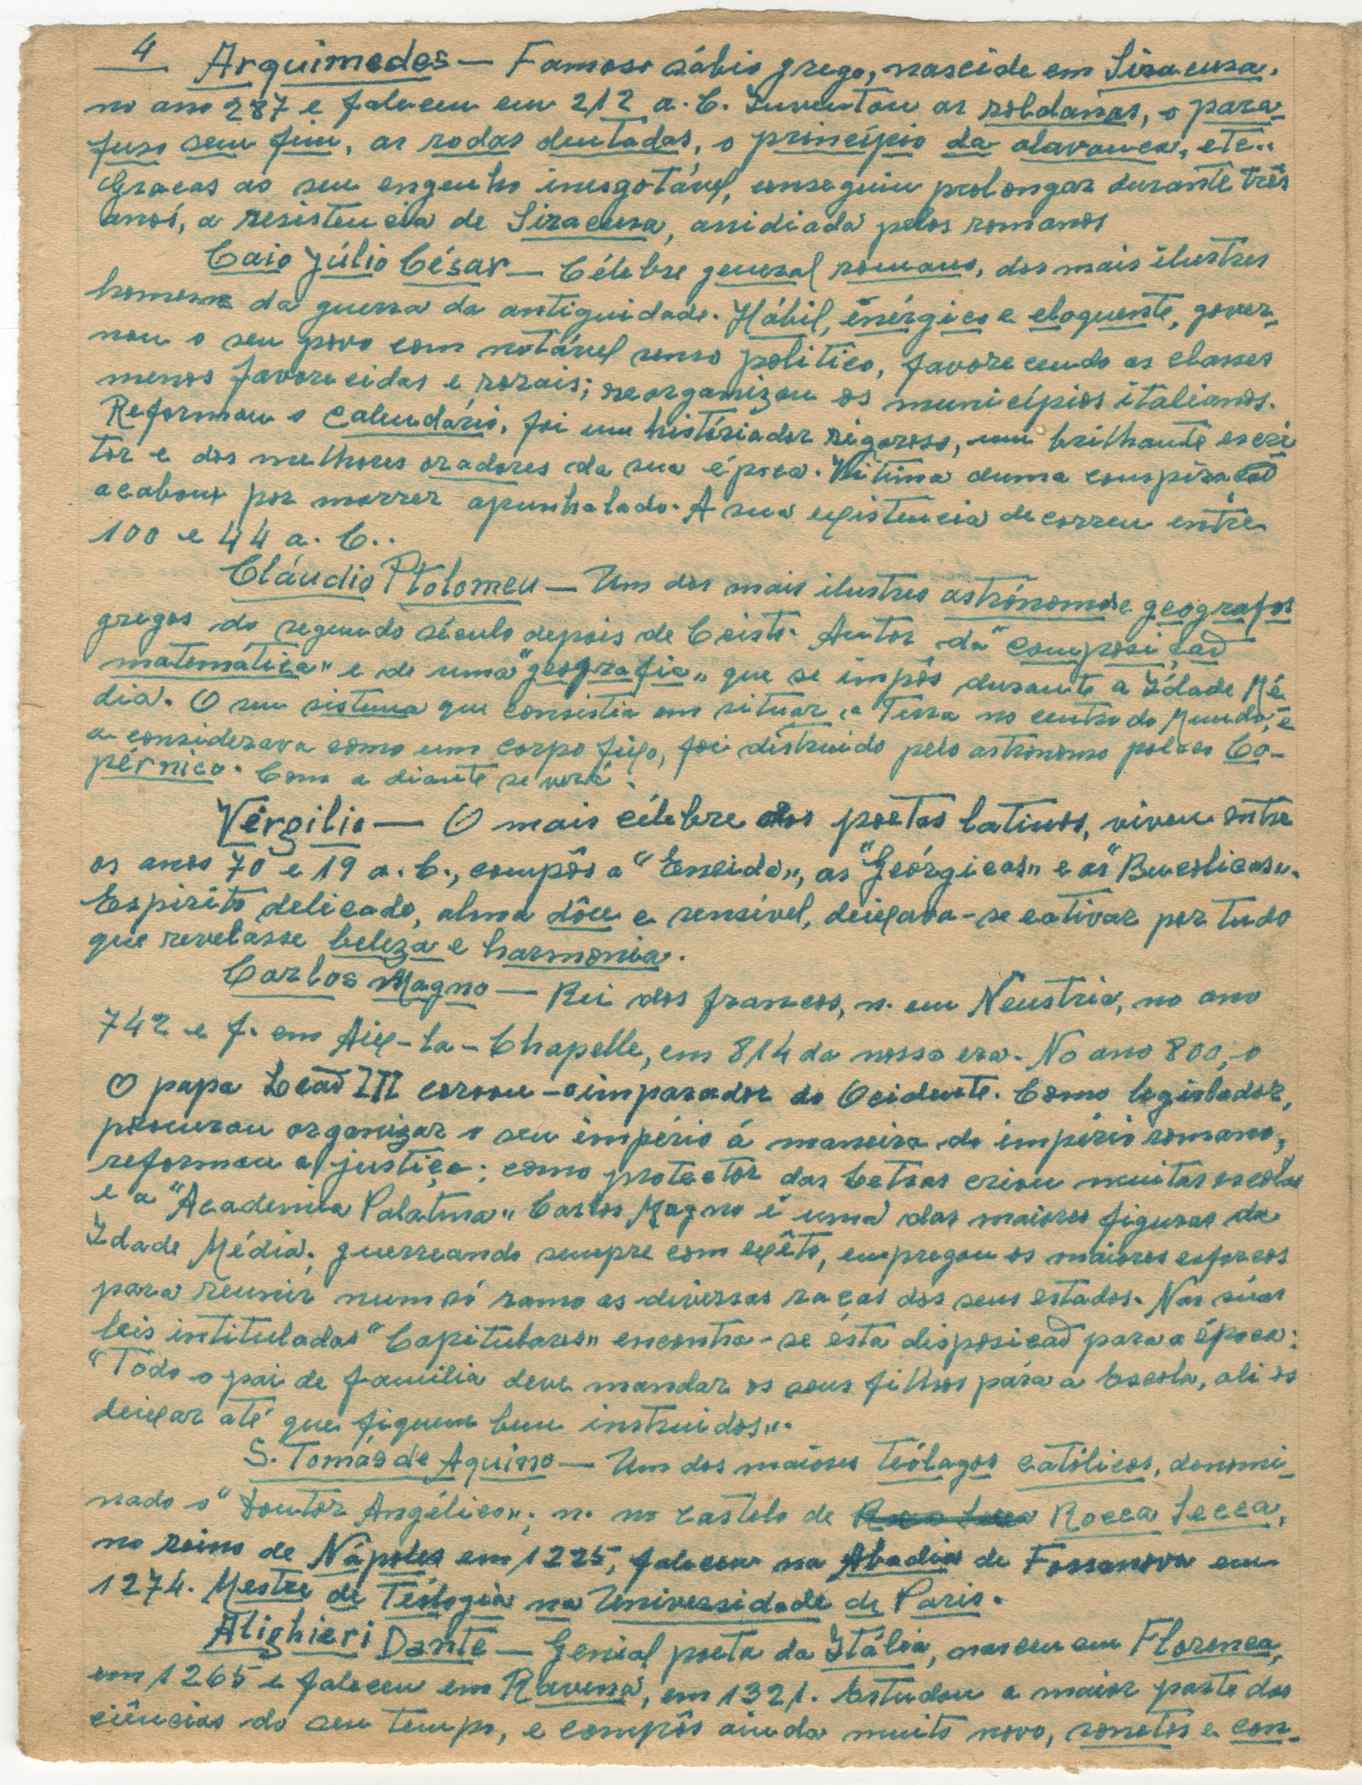 4 Arquimedes — Famoso sábio grego, nascido em Siracusa,
no ano 287 e faleceu em 212 a. C. Inventou as roldanas, o para-
fuso sem fim, as rodas dentadas, o princípio da alavanca, etc..
Graças ao seu engenho inesgotável, conseguiu prolongar durante três
anos, a resistencia de Siracusa, assidiada pelos romanos
Caio Júlio César — Célebre general romano, dos mais ilustres
homens da guerra da antiguidade. Hábil, enérgico e eloquente, gover-
nou o seu povo com notável senso politico, favorecendo as classes
menos favorecidas e rorais; reorganizou os municípios italianos.
Reformou o Calendário, foi um históriador rigoroso, um brilhante escri
tor e dos melhores oradores da sua época. Vitima duma conspiração
acabou por morrer apunhalado. A sua existencia decorreu entre
100 e 44 a. C..
Cláudio Ptolomeu — Um dos mais ilustres astrónomos e geografos
gregos do segundo século depois de Cristo. Autor da "Composição
matemática" e de uma "geografia" que se impôs durante a Idade Mé-
dia. O seu sistema que consistia em situar a Terra no centro do Mundo, e
a considerava como um corpo fixo, foi distruido pelo astronomo polaco Co-
pérnico. Como a diante se verá.
Vérgilio — O mais célebre dos poetas latinos, viveu entre
os anos 70 e 19 a. C., compôs a "Eneida", as "Geórgicas" e as "Bucolicas".
Espirito delicado, alma dôce e sensível, deixava-se cativar por tudo
que revelasse beleza e harmonia.
Carlos Magno — Rei dos francos, n. em Neustria, no ano
742 e f. em Aix-la-Chapelle, em 814 da nossa era. No ano 800, o
O papa Leão III coroou-o imparador do Ocidente. Como legislador,
procurou organizar o seu império á maneira do império romano,
reformou a justiça; como protector das letras criou muitas escolas
e a "Academia Palatina" Carlos Magno é uma das maiores figuras da
Idade Média; guerreando sempre com exêto, empregou os maiores esforcos
para reunir num só ramo as diversas racas dos seus estados. Nas suas
leis intituladas "Capitulares" encontra-se ésta disposicão para a época:
"Todo o pai de familia deve mandar os seus filhos pára a Escola, ali os
deixar até que fiquem bem instruidos".
S. Tomás de Aquino — Um dos maiores Teólogos católicos, denomi-
nado o "Doutor Angélico"; n. no castelo de Rocca Secca,
no reino de Nápoles em 1225, faleceu na Abadia de Fossanova em
1274. Mestre de Teologia na Universidade de Paris.
Alighieri Dante — Genial poeta da Itália, nasceu em Florença,
em 1265 e faleceu em Ravena, em 1321. Estudou a maior parte das
ciências do seu tempo, e compôs ainda muito novo, sonetos e can-